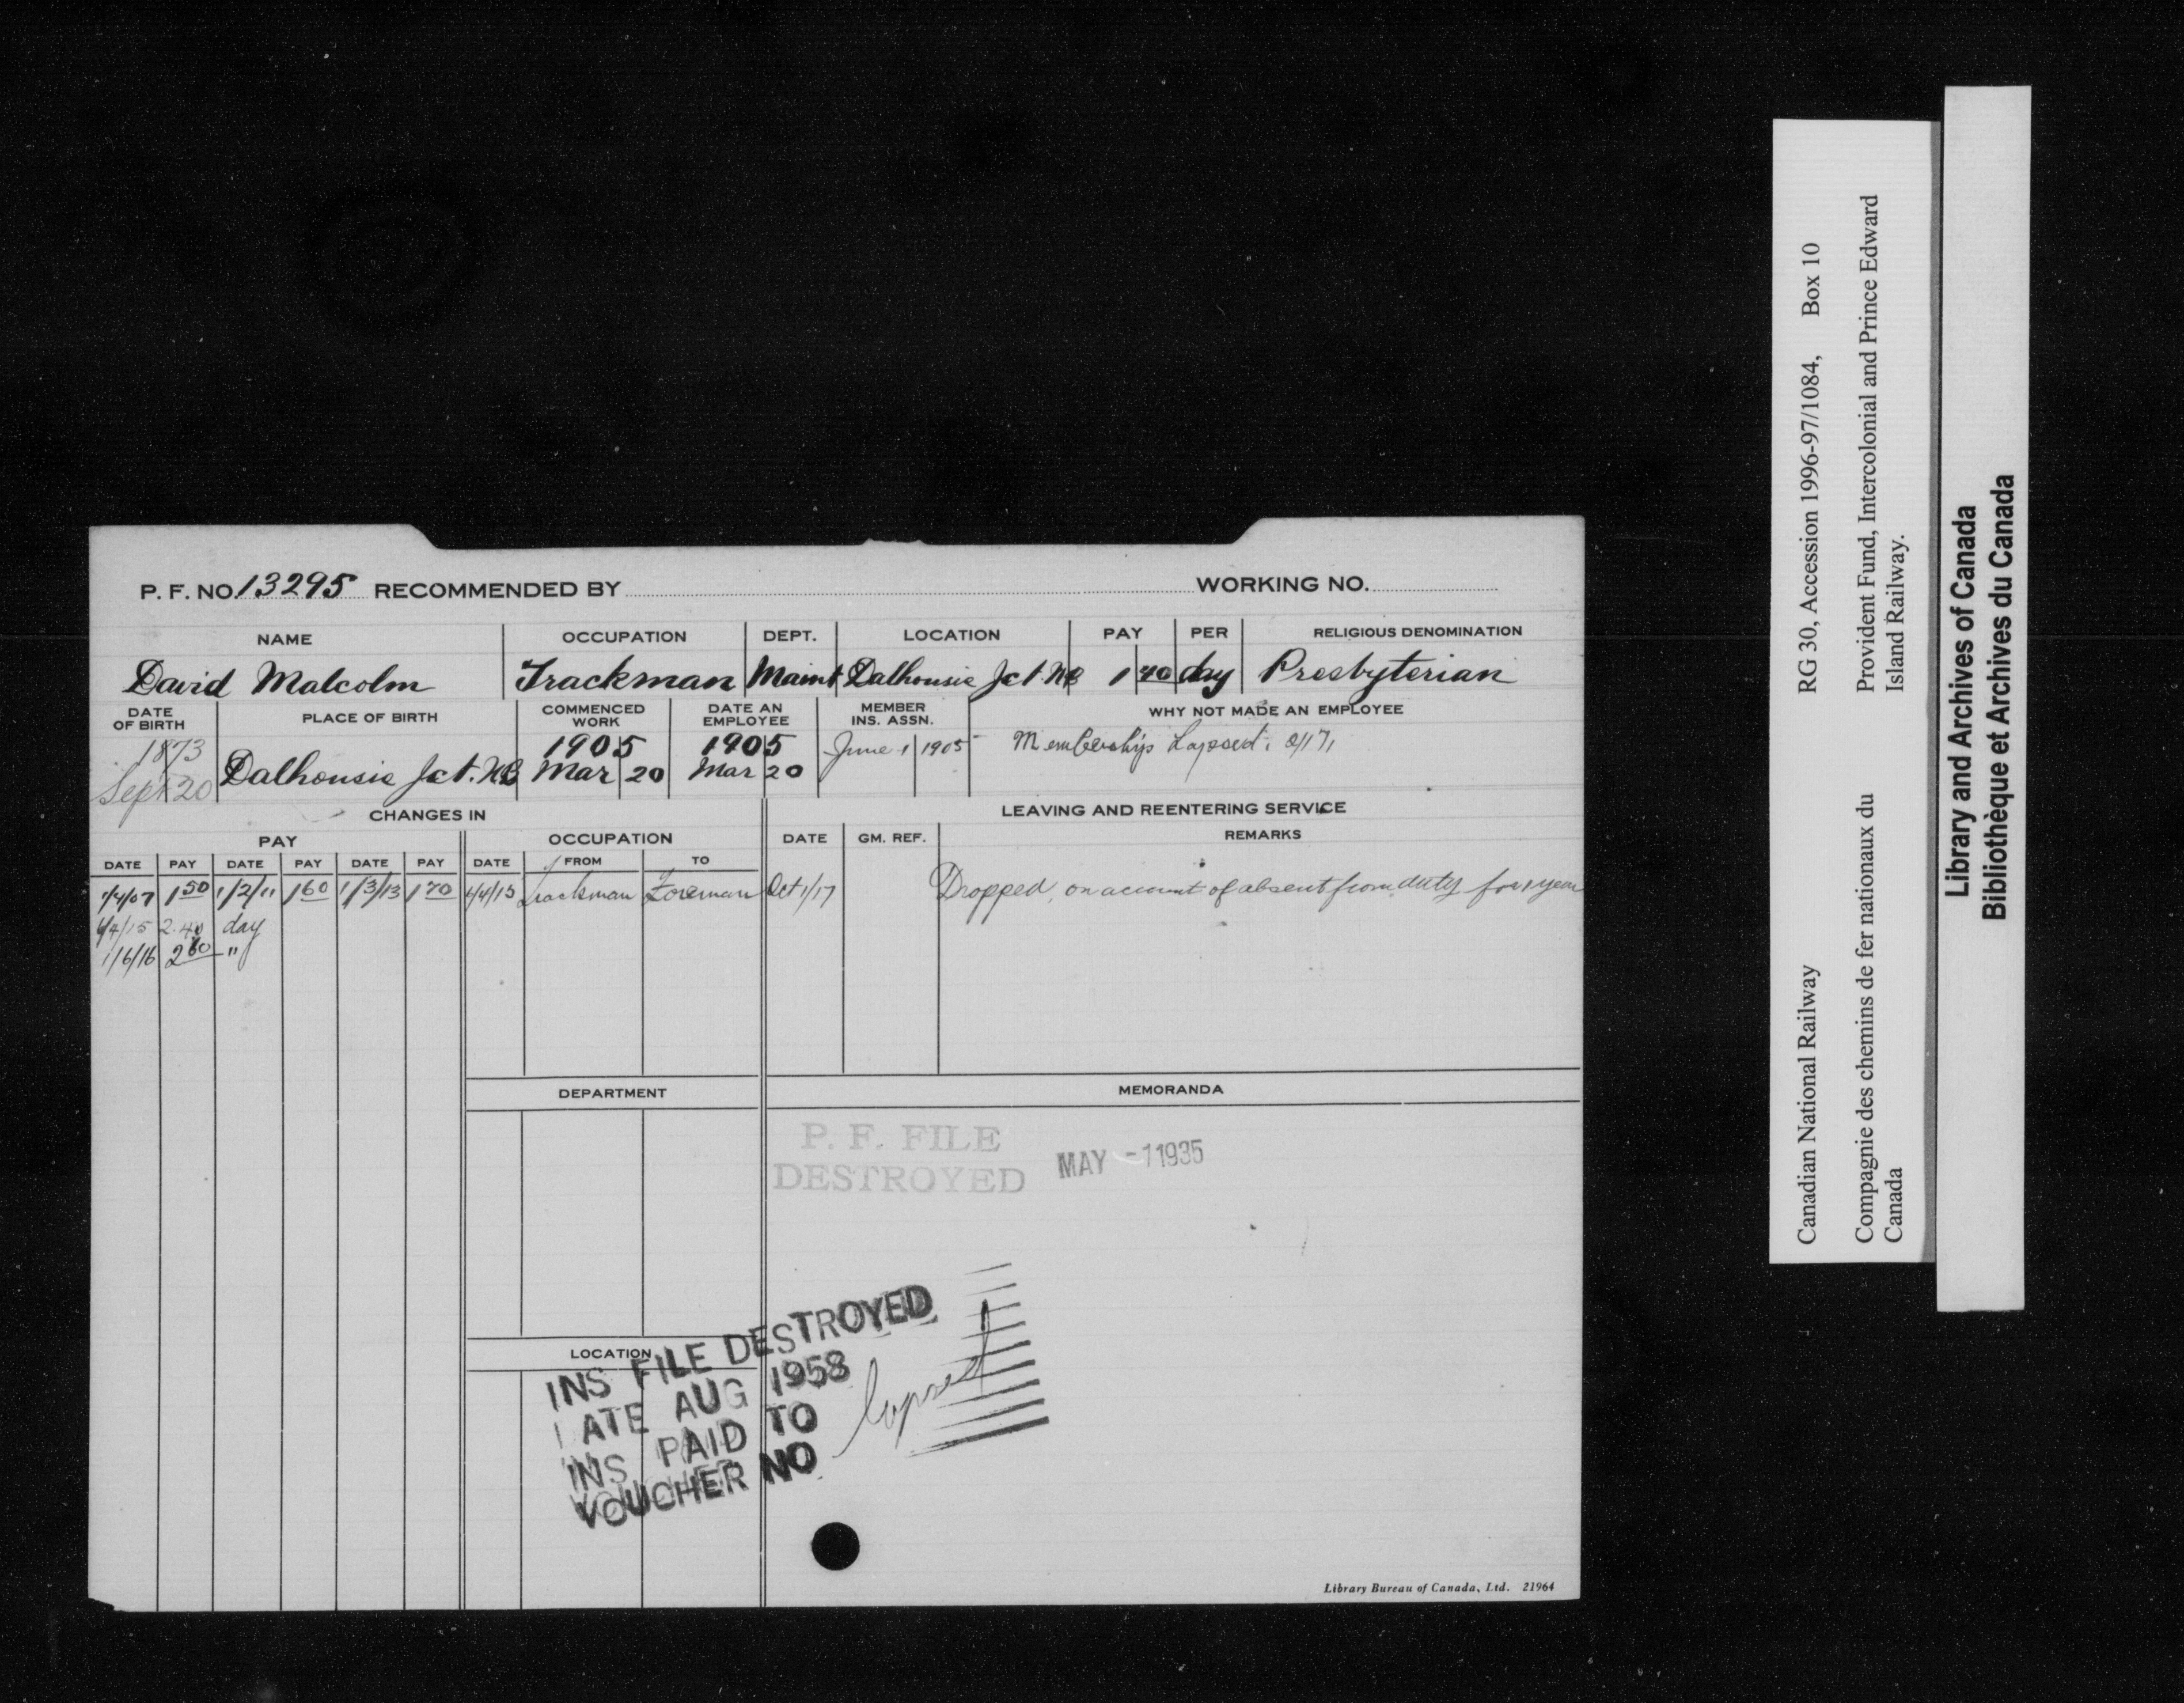 P. F. NO. 13295 RECOMMENDED BY WORKING NO.
NAME OCCUPATION DEPT. LOCATION PAY PER RELIGIOUS DENOMINATION
David Malcolm Trackman Maint Dalhousie Jct. NB 1 40 day Presbyterian
DATE OF BIRTH PLACE OF BIRTH COMMENCED WORK DATE AN EMPLOYEE MEMBER INS. ASSN. WHY NOT MADE AN EMPLOYEE
1873 1905 1905 June 1 1905 Membership Lapsed.
Sept 20 Dalhousie Jct. NB Mar 20 Mar 20
CHANGES IN LEAVING AND REENTERING SERVICE
PAY OCCUPATION DATE GM. REF. REMARKS
DATE PAY DATE PAY DATE PAY DATE FROM TO
1/4/07 1 50 1/2/11 1 60 1/3/13 1 70 4/4/15 Trackman Foreman Oct 1/17 Dropped, on account of absent from duty for 1 year
4/4/15 2.40 day
1/6/16 2 60 "
DEPARTMENT MEMORANDA
P. F. FILE
DESTROYED MAY -1 1935
LOCATION
INS FILE DESTROYED
ATE AUG 1958
INS PAID TO
VOUCHER NO
lapsed
Library Bureau of Canada, Ltd. 21964
Canadian National Railway RG 30, Accession 1996-97/1084, Box 10
Compagnie des chemins de fer nationaux du Canada
Provident Fund, Intercolonial and Prince Edward Island Railway.
Library and Archives of Canada
Bibliothèque et Archives du Canada